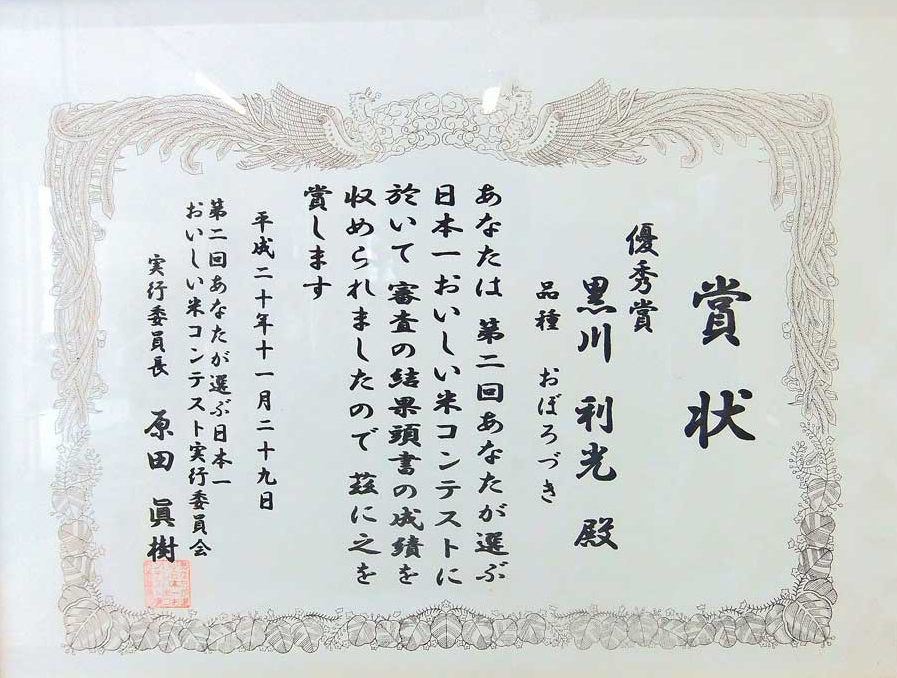 賞状
優秀賞
黒川 利光 殿
品種 おぼろづき
あなたは 第二回あなたが選ぶ
日本一おいしい米コンテストに
於いて 審査の結果頭書の成績を
収められましたので 茲に之を
賞します
平成二十年十一月二十九日
第二回あなたが選ぶ日本一
おいしい米コンテスト実行委員会
実行委員長 原田 眞樹